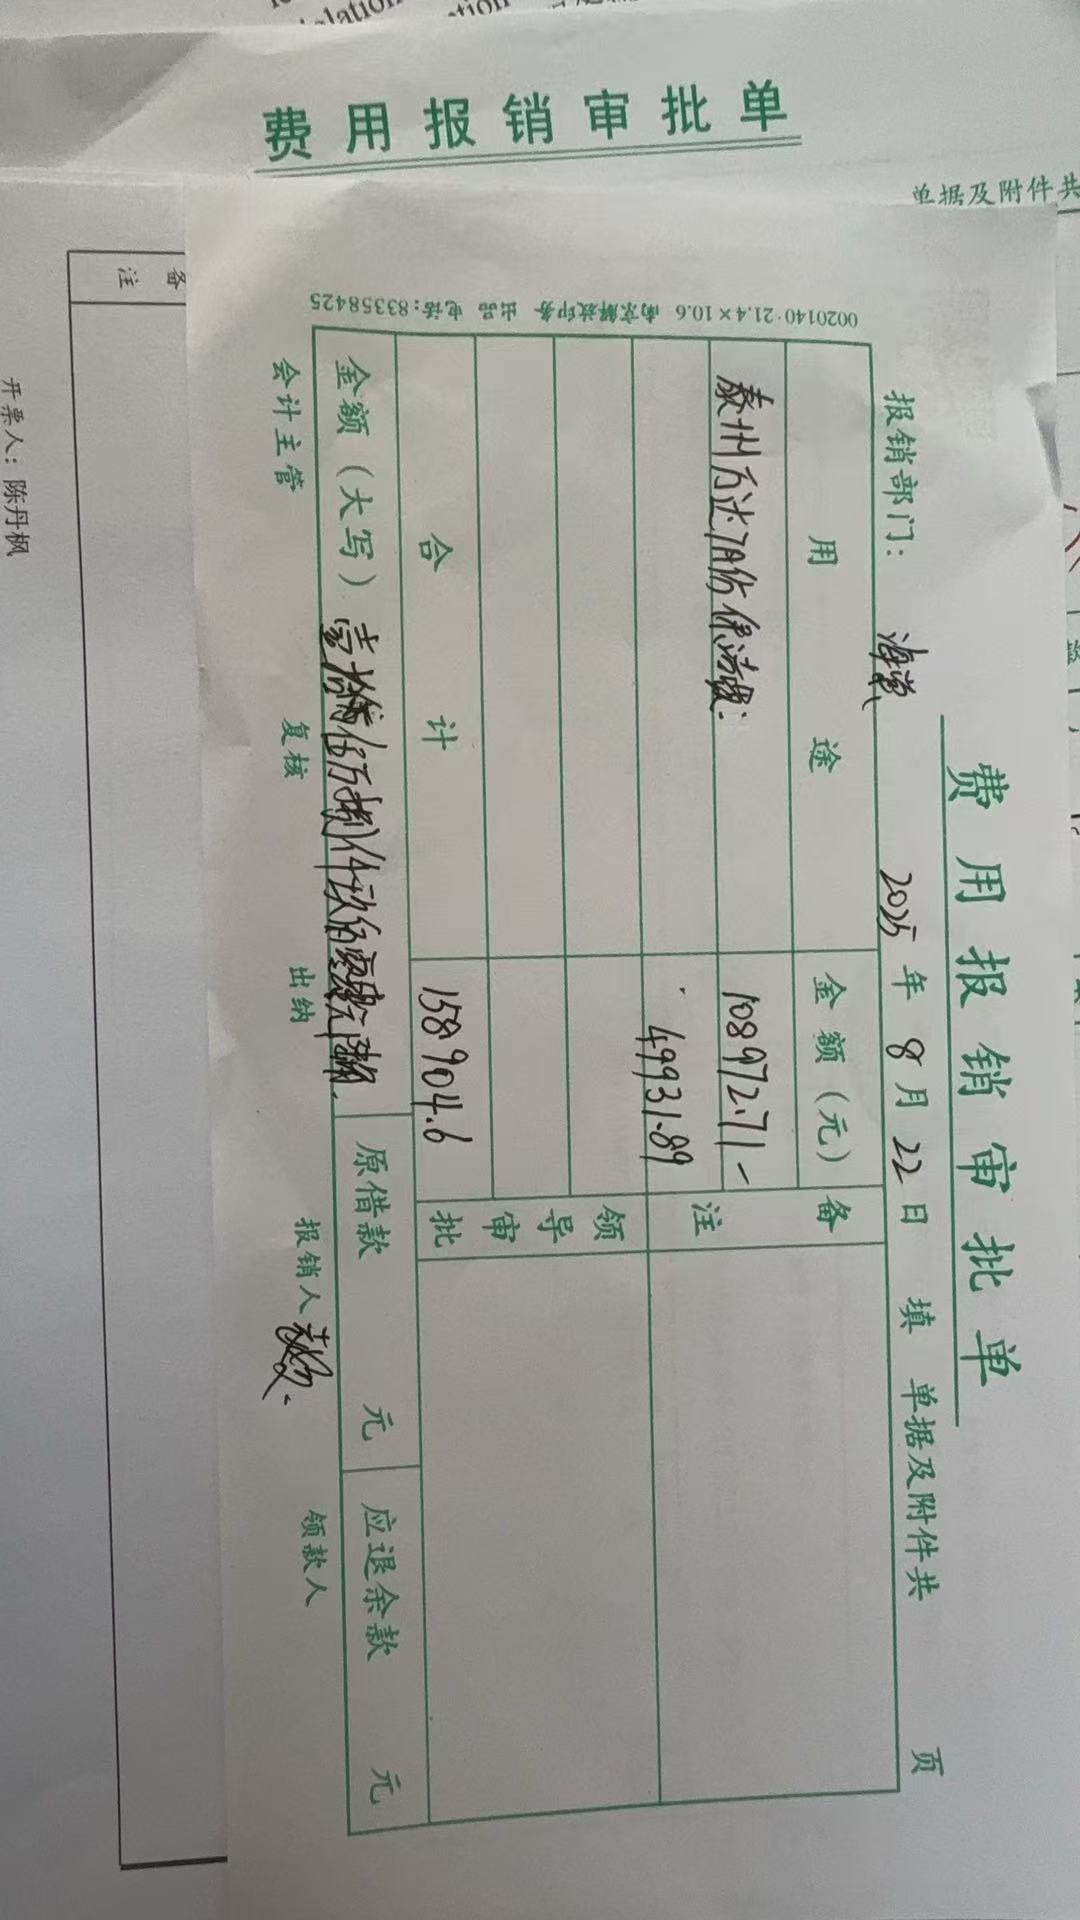 费用报销审批单
单据及附件共
备注
开票人：陈丹枫
费用报销审批单
报销部门：
2025年8月22日 填 单据及附件共 页
用途 金额（元） 备注
泰州万达7月份保洁费： 108972.71
49931.89
领导审批
合计 158904.6
金额（大写） 原借款 元 应退余款 元
会计主管 复核 出纳 报销人 领款人
0020140·21.4×10.6 南京解放印务 出品 电话：83358425